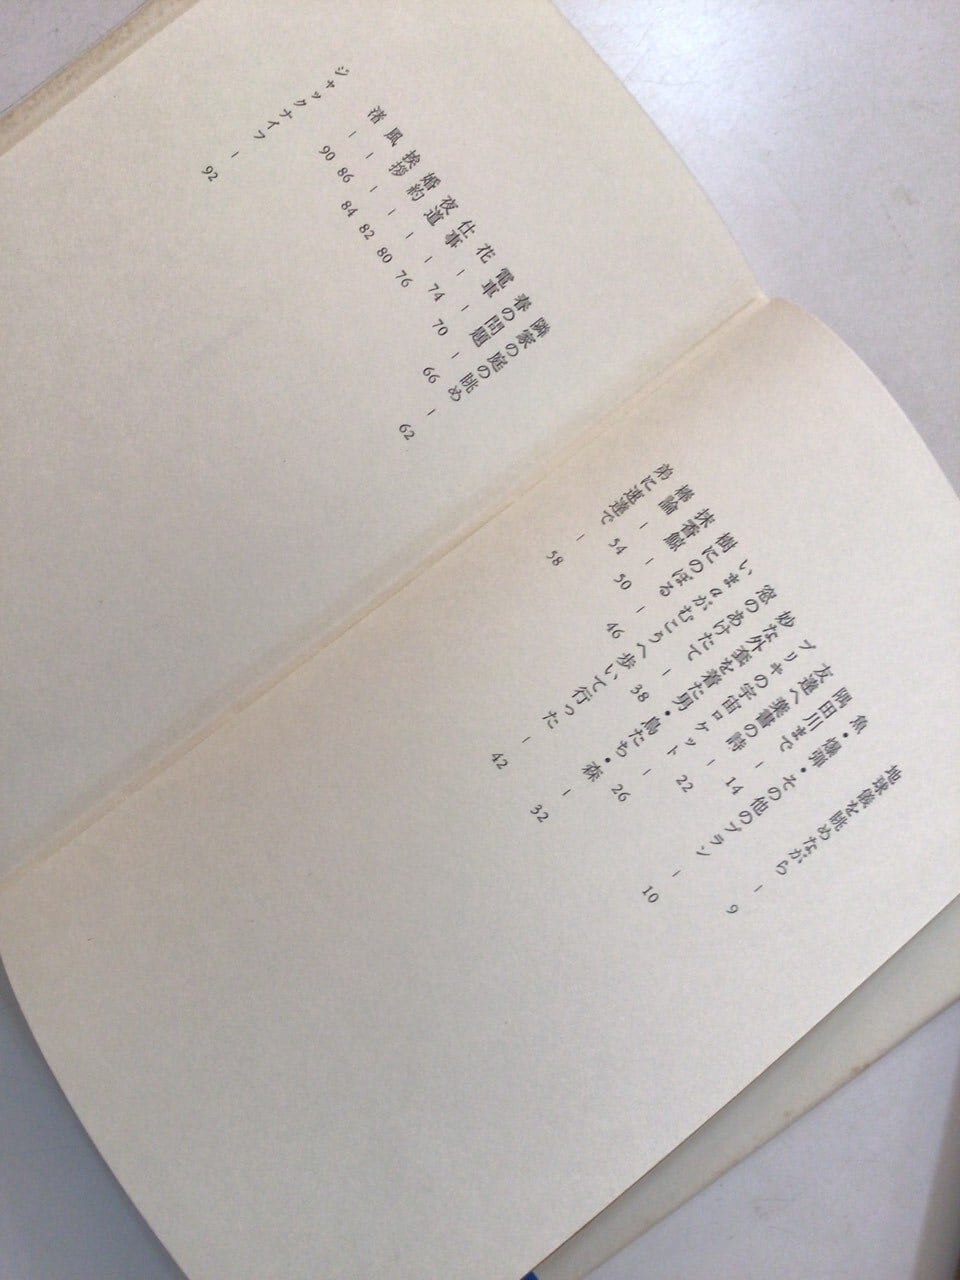 地球儀を眺めながら — 9
魚・爆弾・その他のプラン — 10
隅田川まで — 14
友達へ 葉書の詩 — 22
ブリキの宇宙ロケット — 26
妙な外套を着た男・鳥たち・森 — 32
窓のあけたて — 38
いまaがむこうへ歩いて行った — 42
樹にのぼる — 46
抹香鯨 — 50
棒論 — 54
弟に速達で — 58
隣家の庭の眺め — 62
春の問題 — 66
電車 — 70
花 — 74
仕事 — 76
夜道 — 80
婚約 — 82
挨拶 — 84
風 — 86
渚 — 90
ジャックナイフ — 92